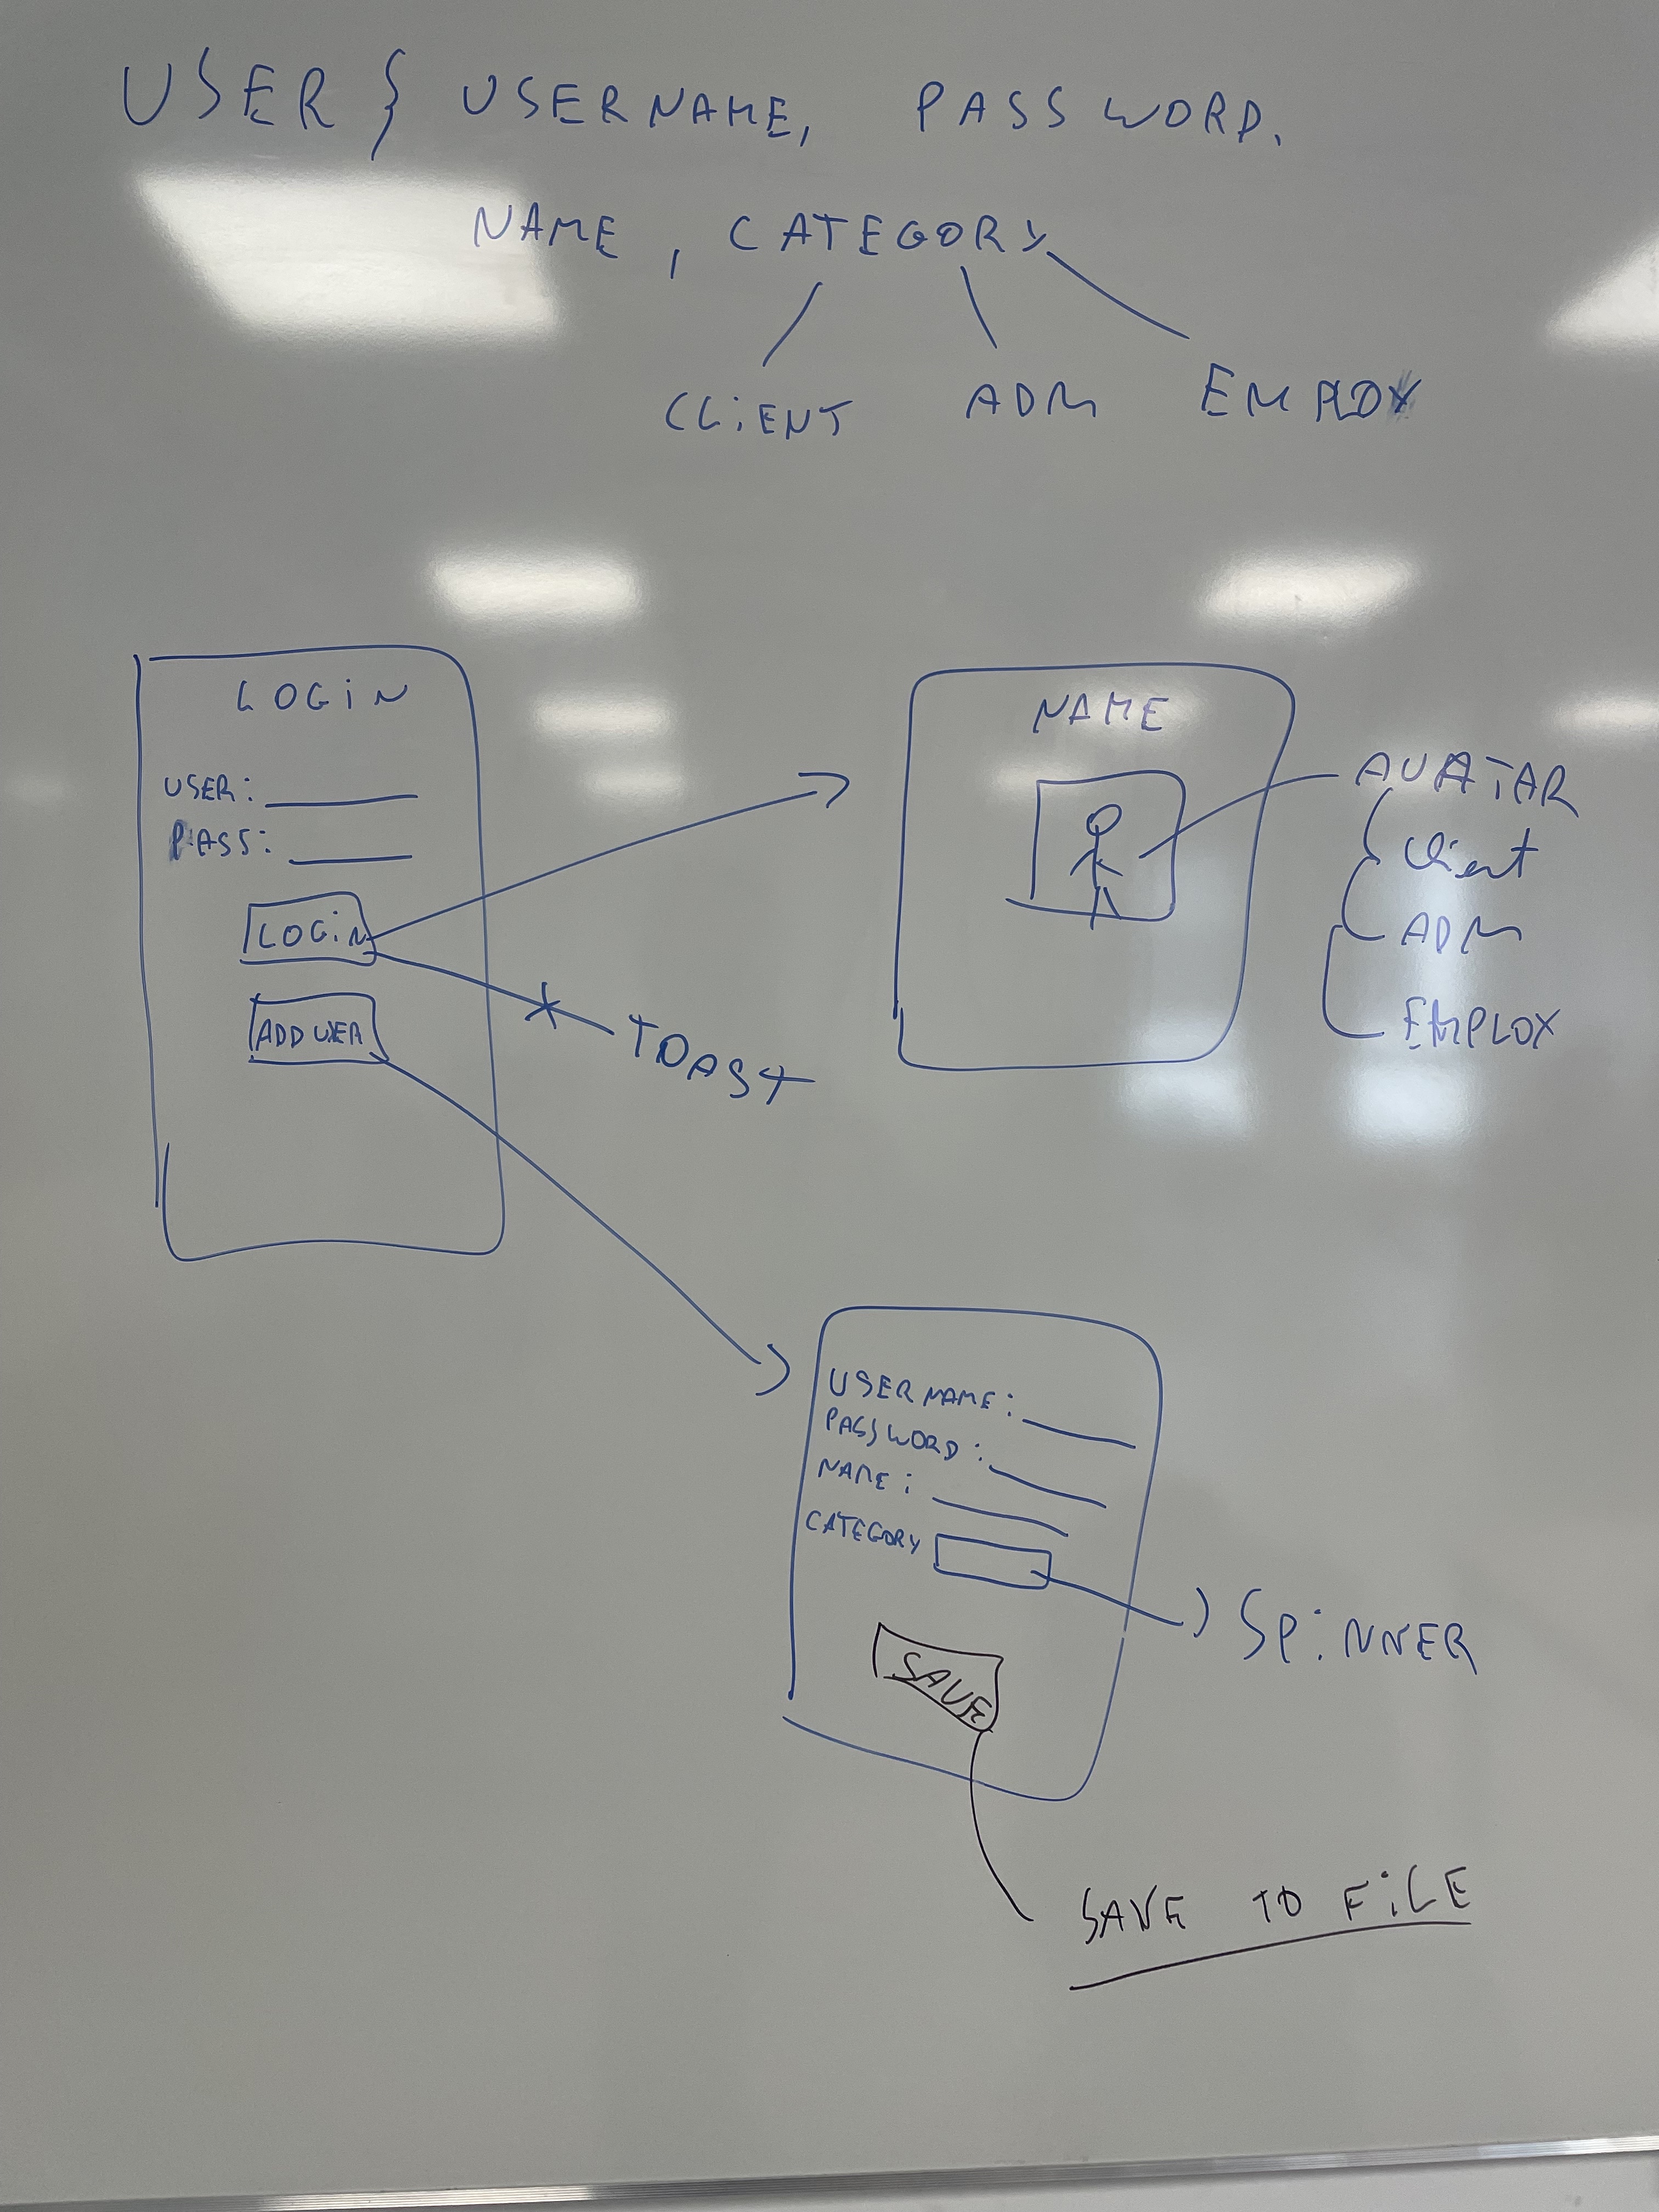 USER } USERNAME, PASSWORD.
NAME, CATEGORY
CLiENT ADM EMPLOY
LOGiN
USER:
PASS:
LOGiN
ADD USER
TOAST
NAME
AVATAR
Client
ADM
EMPLOY
USERNAME:
PASSWORD:
NAME:
CATEGORY
SPiNNER
SAVE
SAVE TO FiLE